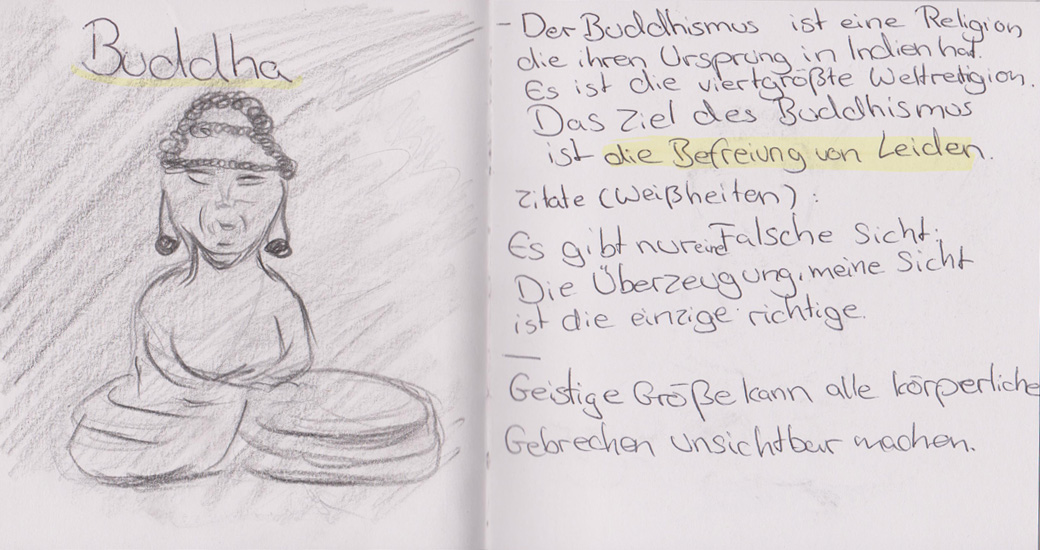 Buddha
- Der Buddhismus ist eine Religion
die ihren Ursprung in Indien hat.
Es ist die viertgrößte Weltreligion.
Das Ziel des Buddhismus
ist die Befreiung von Leiden.
Zitate (Weißheiten):
Es gibt nur eine Falsche Sicht:
Die Überzeugung, meine Sicht
ist die einzige richtige.
—
Geistige Größe kann alle körperliche
Gebrechen unsichtbar machen.